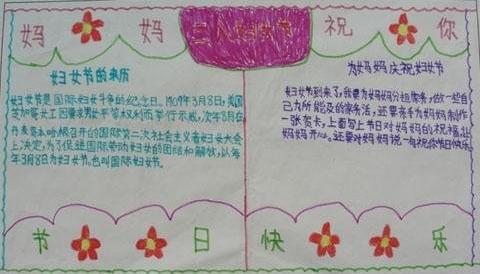 妈 妈 三八妇女节 祝 你
妇女节的来历
妇女节是国际妇女斗争的纪念日。1909年3月8日,美国
芝加哥女工因要求男女平等权利而举行示威,次年8月在
丹麦哥本哈根召开的国际第二次社会主义者妇女大会
上决定,为了促进国际劳动妇女的团结和解放,以每
年3月8日为妇女节。也叫国际妇女节。
为妈妈庆祝妇女节
妇女节到来了,我要为妈妈分担家务,做一些自
己力所能及的家务活,还要亲手为妈妈制作
一张贺卡,上面写上节日对妈妈的祝福,让
妈妈开心。还要对妈妈说一句祝你节日快乐
节 日 快 乐